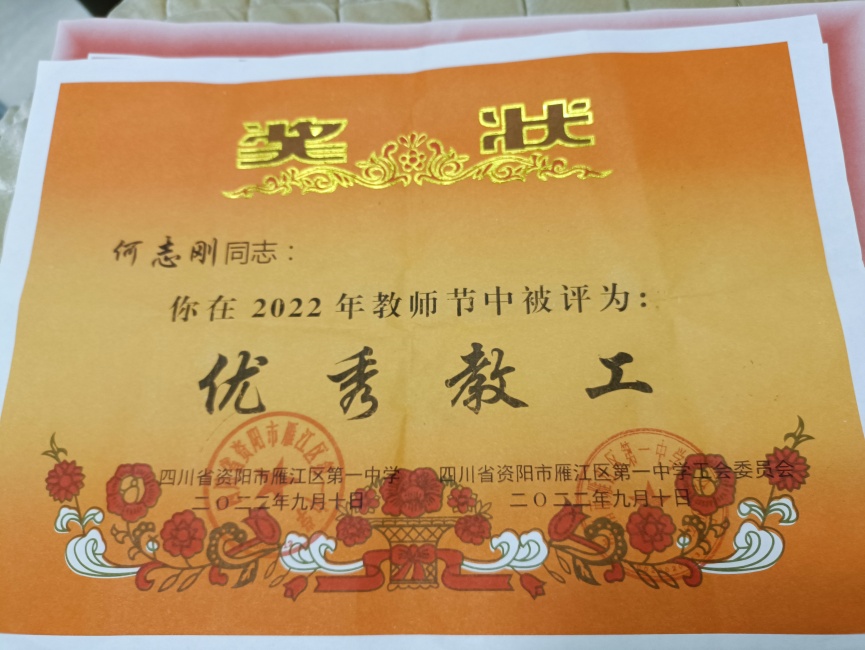 奖状
何志刚同志：
你在2022年教师节中被评为：
优秀教工
四川省资阳市雁江区第一中学 四川省资阳市雁江区第一中学工会委员会
二〇二二年九月十日 二〇二二年九月十日